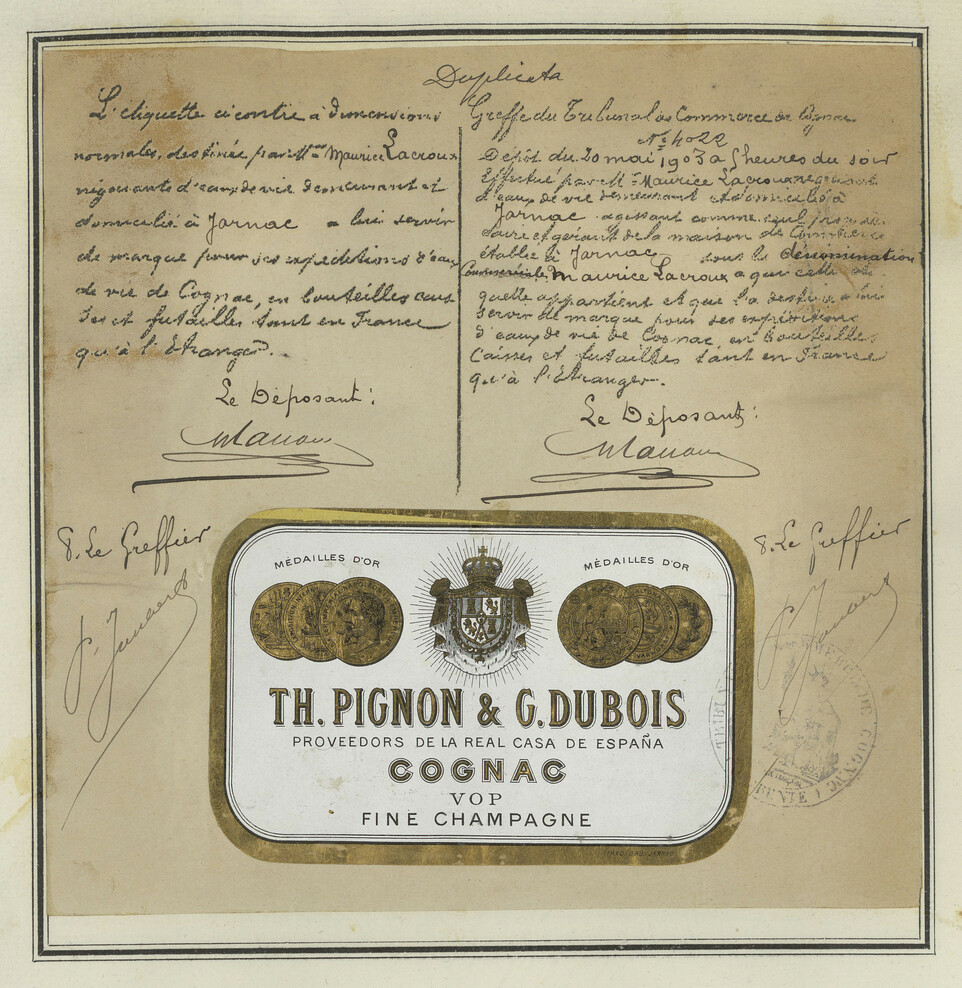 Duplicata
L'étiquette ci contre à dimensions
normales, destinée par Mr Maurice Lacroux
négociants d'eaux de vie demeurant et
domicilié à Jarnac a lui servir
de marque pour ses expéditions d'eaux
de vie de Cognac, en bouteilles cais
ses et futailles tant en France
qu'à l'Etranger.
Le Déposant:
P. Le Greffier
Greffe du Tribunal de Commerce de Cognac
No 4022
Dépôt du 20 mai 1903 à 5 heures du soir
Effectué par M. Maurice Lacroux négociant
d'eaux de vie demeurant et domicilié à
Jarnac agissant comme seul proprié
taire et gérant de la maison de Commerce
établie à Jarnac sous la dénomination
Commerciale Maurice Lacroux a qui cette éti
quette appartient et que l'a destinée a lui
servir de marque pour ses expéditions
d'eaux de vie de Cognac, en bouteilles
Caisses et futailles tant en France
qu'à l'Etranger.
Le Déposant:
P. Le Greffier
MÉDAILLES D'OR
MÉDAILLES D'OR
TH. PIGNON & G. DUBOIS
PROVEEDORS DE LA REAL CASA DE ESPAÑA
COGNAC
VOP
FINE CHAMPAGNE